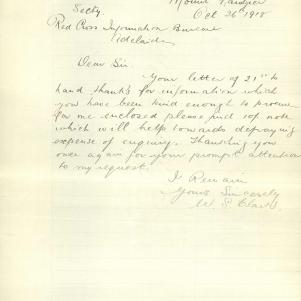 Mount
Oct 26 1918
Secty
Red Cross Information Bureau
Adelaide
Dear Sir.
Your letter of 21st to
hand thanks for information which
you have been kind enough to procure
for me enclosed please find 10/- note
which will help towards defraying
expense of enquiry. Thanking you
once again for your prompt attention
to my request.
I Remain
Yours Sincerely
W. S.